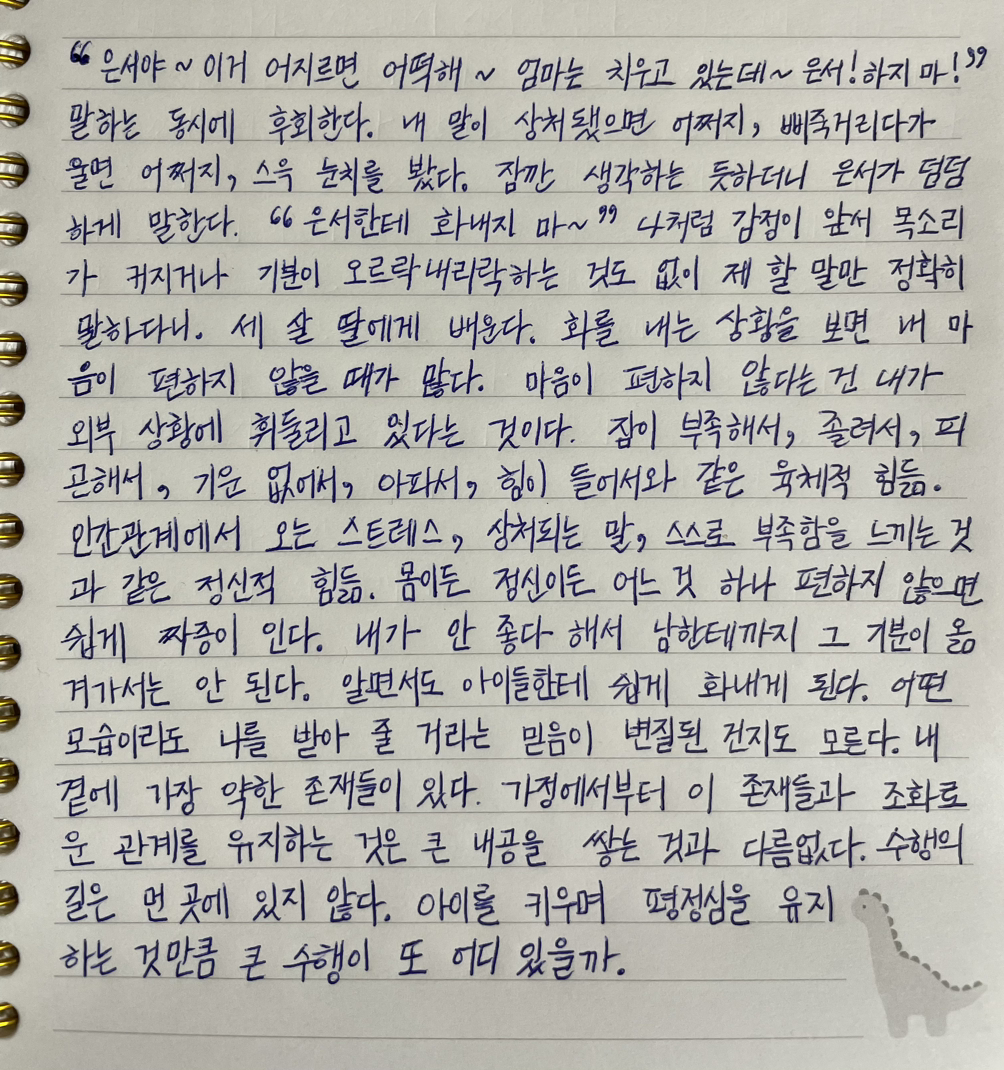 “ 은서야~ 이거 어지르면 어떡해~ 엄마는 치우고 있는데~ 은서! 하지 마!”
말하는 동시에 후회한다. 내 말이 상처됐으면 어쩌지, 삐죽거리다가
울면 어쩌지, 스윽 눈치를 봤다. 잠깐 생각하는 듯하더니 은서가 덤덤
하게 말한다. “ 은서한테 화내지 마~” 나처럼 감정이 앞서 목소리
가 커지거나 기분이 오르락내리락하는 것도 없이 제 할 말만 정확히
말하다니. 세 살 딸에게 배운다. 화를 내는 상황을 보면 내 마
음이 편하지 않을 때가 많다. 마음이 편하지 않다는 건 내가
외부 상황에 휘둘리고 있다는 것이다. 잠이 부족해서, 졸려서, 피
곤해서, 기운 없어서, 아파서, 힘이 들어서와 같은 육체적 힘듦.
인간관계에서 오는 스트레스, 상처되는 말, 스스로 부족함을 느끼는 것
과 같은 정신적 힘듦. 몸이든 정신이든 어느 것 하나 편하지 않으면
쉽게 짜증이 인다. 내가 안 좋다 해서 남한테까지 그 기분이 옮
겨가서는 안 된다. 알면서도 아이들한테 쉽게 화내게 된다. 어떤
모습이라도 나를 받아 줄 거라는 믿음이 변질된 건지도 모른다. 내
곁에 가장 약한 존재들이 있다. 가정에서부터 이 존재들과 조화로
운 관계를 유지하는 것은 큰 내공을 쌓는 것과 다름없다. 수행의
길은 먼 곳에 있지 않다. 아이를 키우며 평정심을 유지
하는 것만큼 큰 수행이 또 어디 있을까.